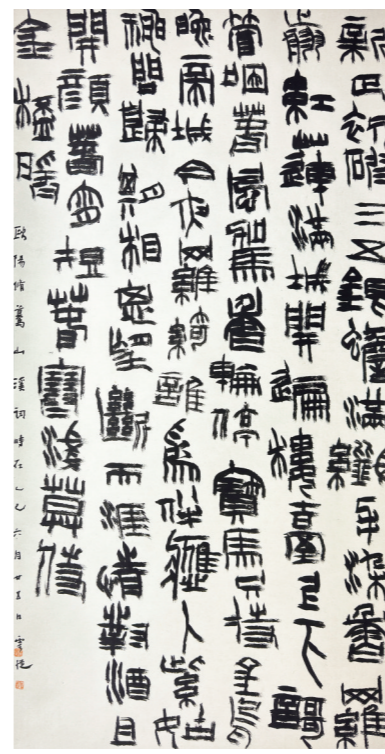 新正初破三五銀蟾滿纖手染香羅
剪紅蓮滿城開遍樓臺上下歌
管咽春風駕香輪停寶馬只待金烏
晚帝城今夜羅綺誰為伴應卜紫姑
神問歸期相思望斷天涯情緒對酒且
開顏春宵短春寒淺莫待
金杯暖
歐陽修驀山溪詞時在乙巳六月廿五日